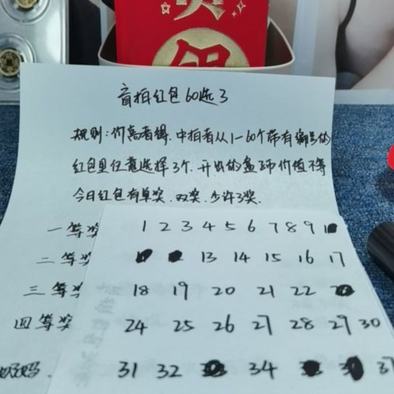 盲拍红包60选3
规则:价高者得.中拍者从1-60个带有编号的
红包里任意选择3个.开出的盒币价值不等
今日红包有单奖.双奖.少许3奖.
一等奖 1 2 3 4 5 6 7 8 9
二等奖 13 14 15 16 17
三等奖 18 19 20 21 22
四等奖 24 25 26 27 28 29 30
31 32 34